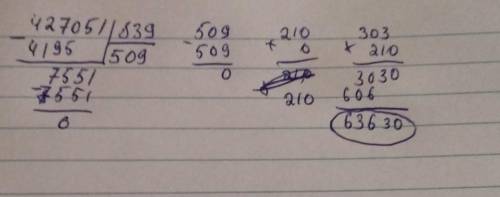 427051 | 839
- 4195 | 509
7551
- 7551
0
509
- 509
0
210
+ 0
210
303
× 210
3030
606
63630